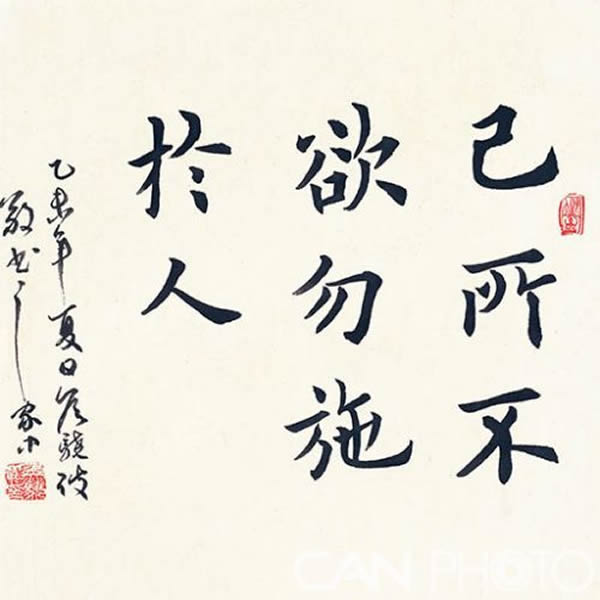 己所不
欲勿施
於人
乙未年夏日
書
CANPHOTO